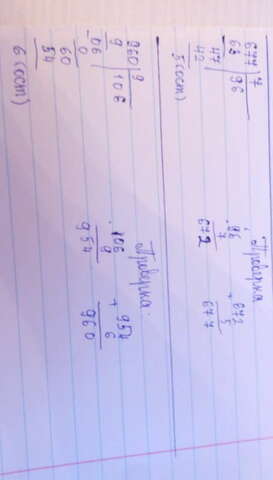 677 7
63 96
47
42
5(ост)
Проверка
96 + 672
7 5
672 677
960 9
9 106
06
0
60
54
6 (ост)
Проверка:
106 + 954
9 6
954 960